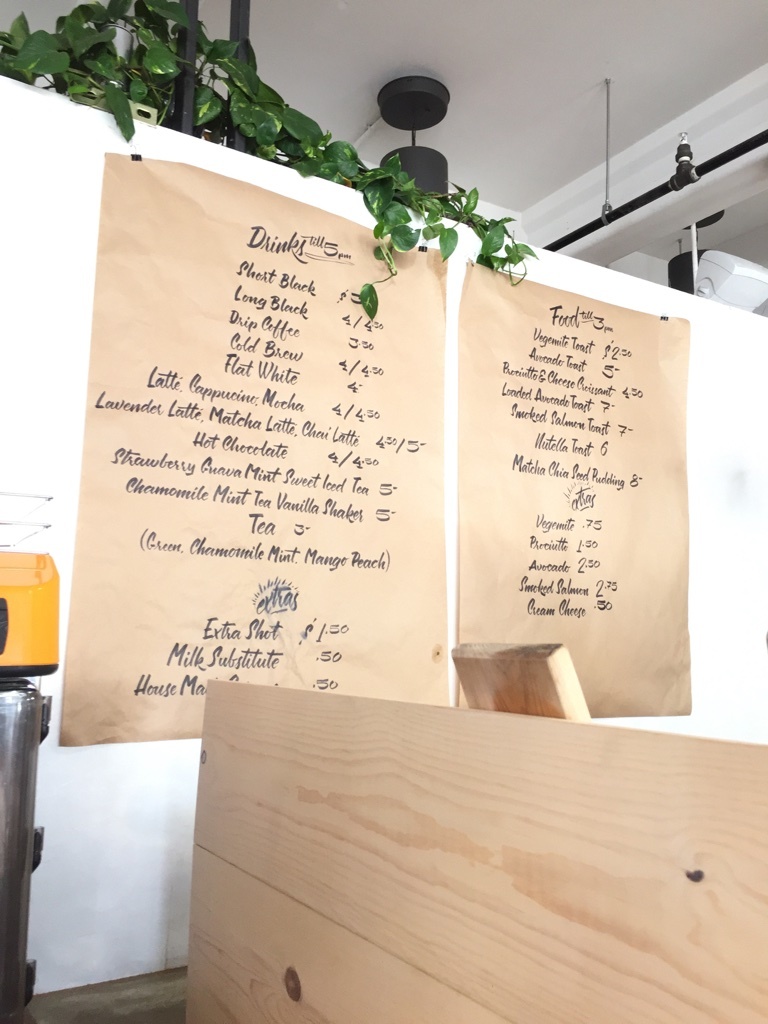 Drinks till 5pm
Short Black $3
Long Black 4/4.50
Drip Coffee 3.50
Cold Brew 4/4.50
Flat White 4-
Latte, Cappucino, Mocha 4/4.50
Lavender Latte, Matcha Latte, Chai Latte 4.50/5-
Hot Chocolate 4/4.50
Strawberry Guava Mint Sweet Iced Tea 5-
Chamomile Mint Tea Vanilla Shaker 5-
Tea 3-
(Green, Chamomile Mint, Mango Peach)
extras
Extra Shot $1.50
Milk Substitute .50
House .50
Food till 3pm
Vegemite Toast $2.50
Avocado Toast 5-
Prociutto & Cheese Croissant 4.50
Loaded Avocado Toast 7-
Smoked Salmon Toast 7-
Nutella Toast 6
Matcha Chia Seed Pudding 8-
extras
Vegemite .75
Prociutto 1.50
Avocado 2.50
Smoked Salmon 2.75
Cream Cheese .50